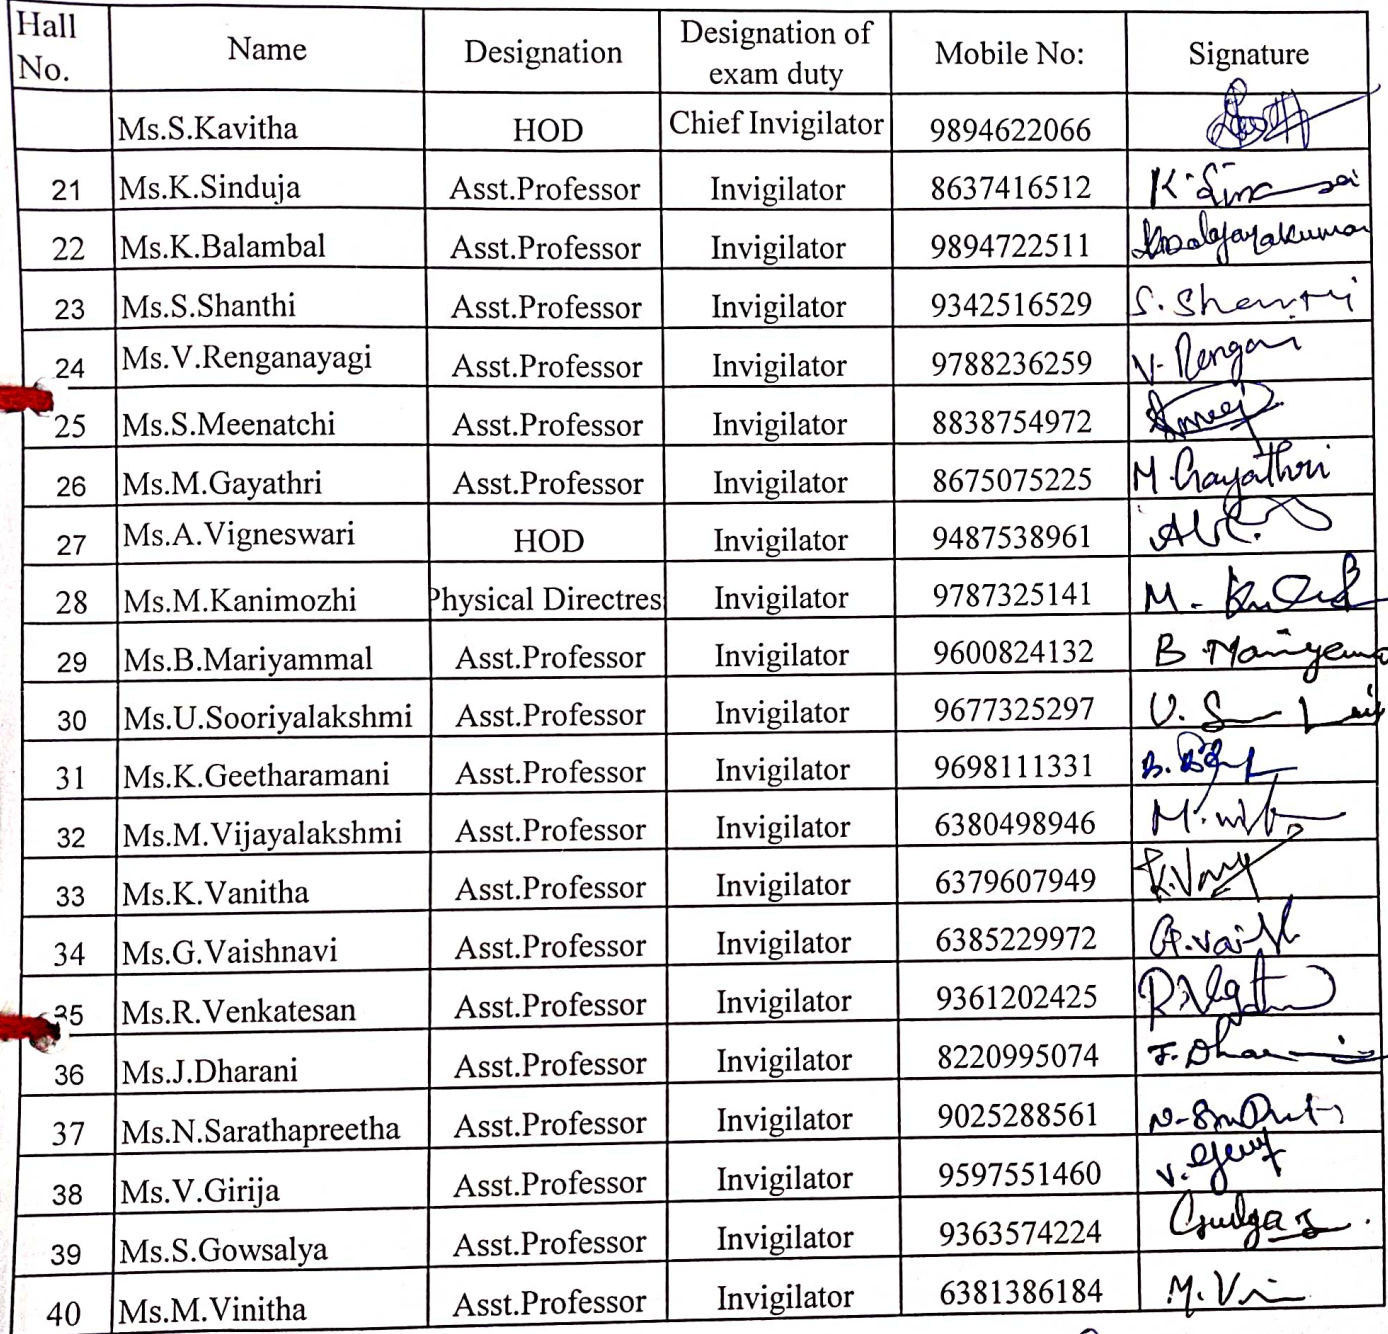 Hall No. Name Designation Designation of exam duty Mobile No: Signature
Ms.S.Kavitha HOD Chief Invigilator 9894622066
21 Ms.K.Sinduja Asst.Professor Invigilator 8637416512
22 Ms.K.Balambal Asst.Professor Invigilator 9894722511
23 Ms.S.Shanthi Asst.Professor Invigilator 9342516529 S. Shanthi
24 Ms.V.Renganayagi Asst.Professor Invigilator 9788236259
25 Ms.S.Meenatchi Asst.Professor Invigilator 8838754972
26 Ms.M.Gayathri Asst.Professor Invigilator 8675075225 M. Gayathri
27 Ms.A.Vigneswari HOD Invigilator 9487538961
28 Ms.M.Kanimozhi Physical Directres Invigilator 9787325141
29 Ms.B.Mariyammal Asst.Professor Invigilator 9600824132
30 Ms.U.Sooriyalakshmi Asst.Professor Invigilator 9677325297
31 Ms.K.Geetharamani Asst.Professor Invigilator 9698111331
32 Ms.M.Vijayalakshmi Asst.Professor Invigilator 6380498946
33 Ms.K.Vanitha Asst.Professor Invigilator 6379607949
34 Ms.G.Vaishnavi Asst.Professor Invigilator 6385229972
35 Ms.R.Venkatesan Asst.Professor Invigilator 9361202425
36 Ms.J.Dharani Asst.Professor Invigilator 8220995074
37 Ms.N.Sarathapreetha Asst.Professor Invigilator 9025288561
38 Ms.V.Girija Asst.Professor Invigilator 9597551460
39 Ms.S.Gowsalya Asst.Professor Invigilator 9363574224
40 Ms.M.Vinitha Asst.Professor Invigilator 6381386184